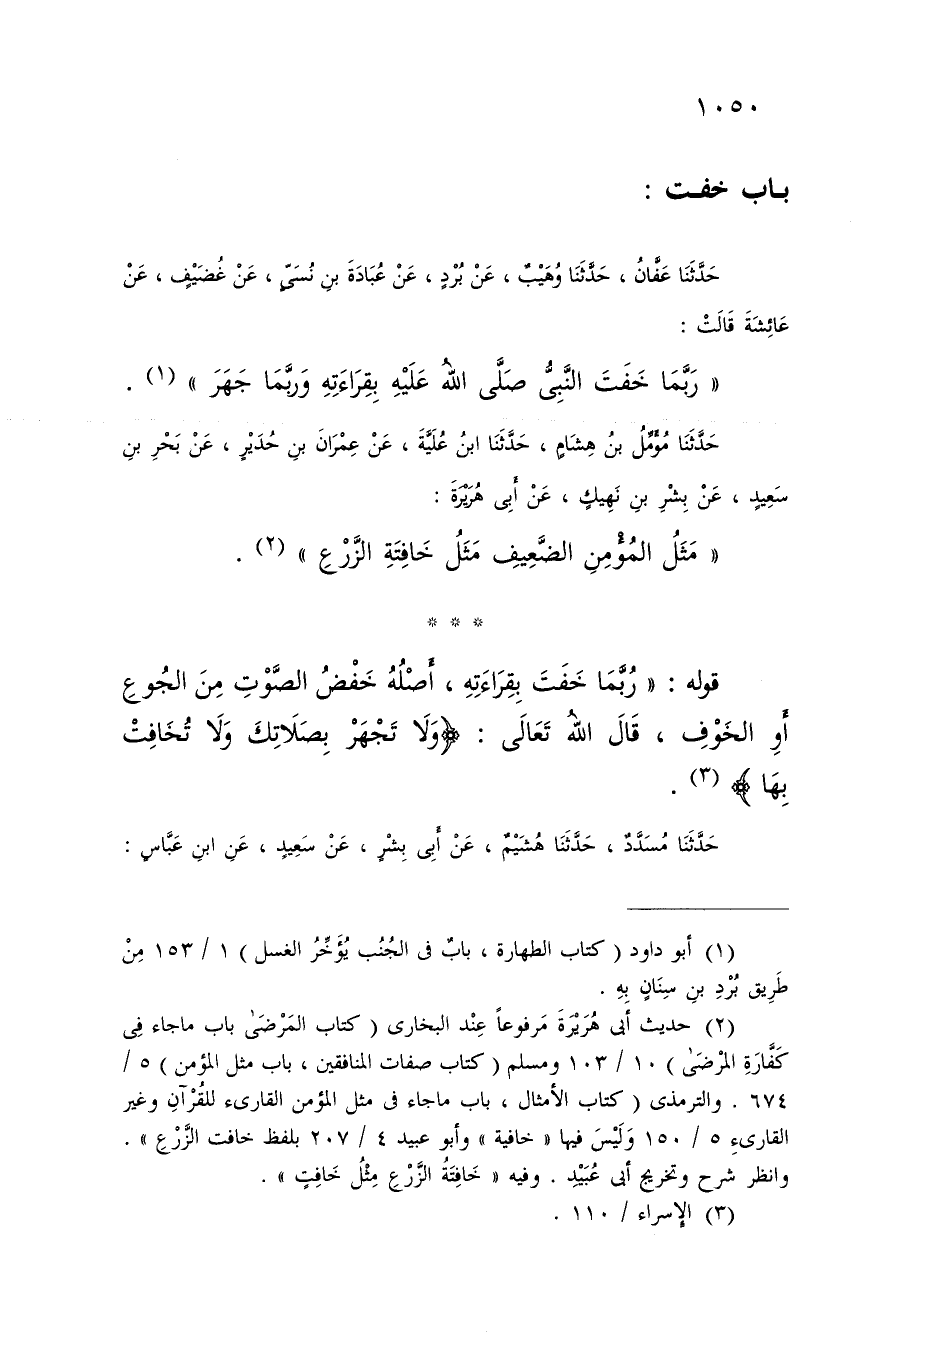 ١٠٥٠
باب خفت :
حَدَّثَنَا عَفَّانُ ، حَدَّثَنَا وُهَيْبٌ ، عَنْ بُرْدٍ ، عَنْ عُبَادَةَ بنِ نُسَيّ ، عَنْ غُضَيْفٍ ، عَنْ
عَائِشَةَ قَالَتْ :
« رَبَّمَا خَفَتَ النَّبِىُّ صَلَّى اللهُ عَلَيْهِ بِقِرَاءَتِهِ وَرَبَّمَا جَهَرَ » (١) .
حَدَّثَنَا مُؤَمَّلُ بنُ هِشَامٍ ، حَدَّثَنَا ابنُ عُلَيَّةَ ، عَنْ عِمْرَانَ بنِ حُدَيْرٍ ، عَنْ بَحْرِ بنِ
سَعِيدٍ ، عَنْ بِشْرِ بنِ نَهِيكٍ ، عَنْ أَبِى هُرَيْرَةَ :
« مَثَلُ المُؤْمِنِ الضَّعِيفِ مَثَلُ خَافِتَةِ الزَّرْعِ » (٢) .
* * *
قوله : « رُبَّمَا خَفَتَ بِقِرَاءَتِهِ ، أَصْلُهُ خَفْضُ الصَّوْتِ مِنَ الجُوعِ
أَوِ الخَوْفِ ، قَالَ اللهُ تَعَالَى : ﴿وَلَا تَجْهَرْ بِصَلَاتِكَ وَلَا تُخَافِتْ
بِهَا ﴾ (٣) .
حَدَّثَنَا مُسَدَّدٌ ، حَدَّثَنَا هُشَيْمٌ ، عَنْ أَبِى بِشْرٍ ، عَنْ سَعِيدٍ ، عَنِ ابنِ عَبَّاسٍ :
(١) أبو داود ( كتاب الطهارة ، بابٌ فى الجُنُب يُؤَخِّرُ الغسل ) ١ / ١٥٣ مِنْ
طَرِيق بُرْدِ بنِ سِنَانٍ بِهِ .
(٢) حديث أبى هُرَيْرَةَ مَرفوعاً عِنْد البخارى ( كتاب المَرْضَىٰ باب ماجاء فِى
كَفَّارَةِ المْرضَىٰ ) ١٠ / ١٠٣ ومسلم ( كتاب صفات المنافقين ، باب مثل المؤمن ) ٥ /
٦٧٤ . والترمذى ( كتاب الأمثال ، باب ماجاء فى مثل المؤمن القارىء للقُرْآنِ وغير
القارىءِ ٥ / ١٥٠ وَلَيْسَ فيها « خافية » وأبو عبيد ٤ / ٢٠٧ بلفظ خافت الزَّرْعِ » .
وانظر شرح وتخريج أبى عُبَيْدِ . وفيه « خَافِتَةُ الزَّرْعِ مِثْلُ خَافِتٍ » .
(٣) الإسراء / ١١٠ .